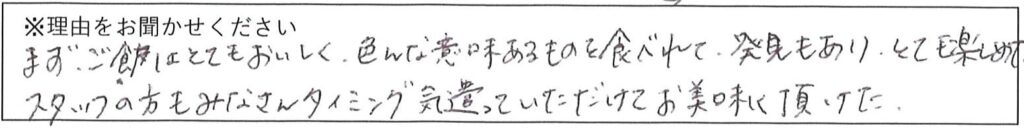 ※理由をお聞かせください
まず、ご飯はとてもおいしく、色んな意味あるものを食べれて、発見もあり、とても楽しめて
スタッフの方もみなさんタイミング気遣っていただけてお美味しく頂けた。